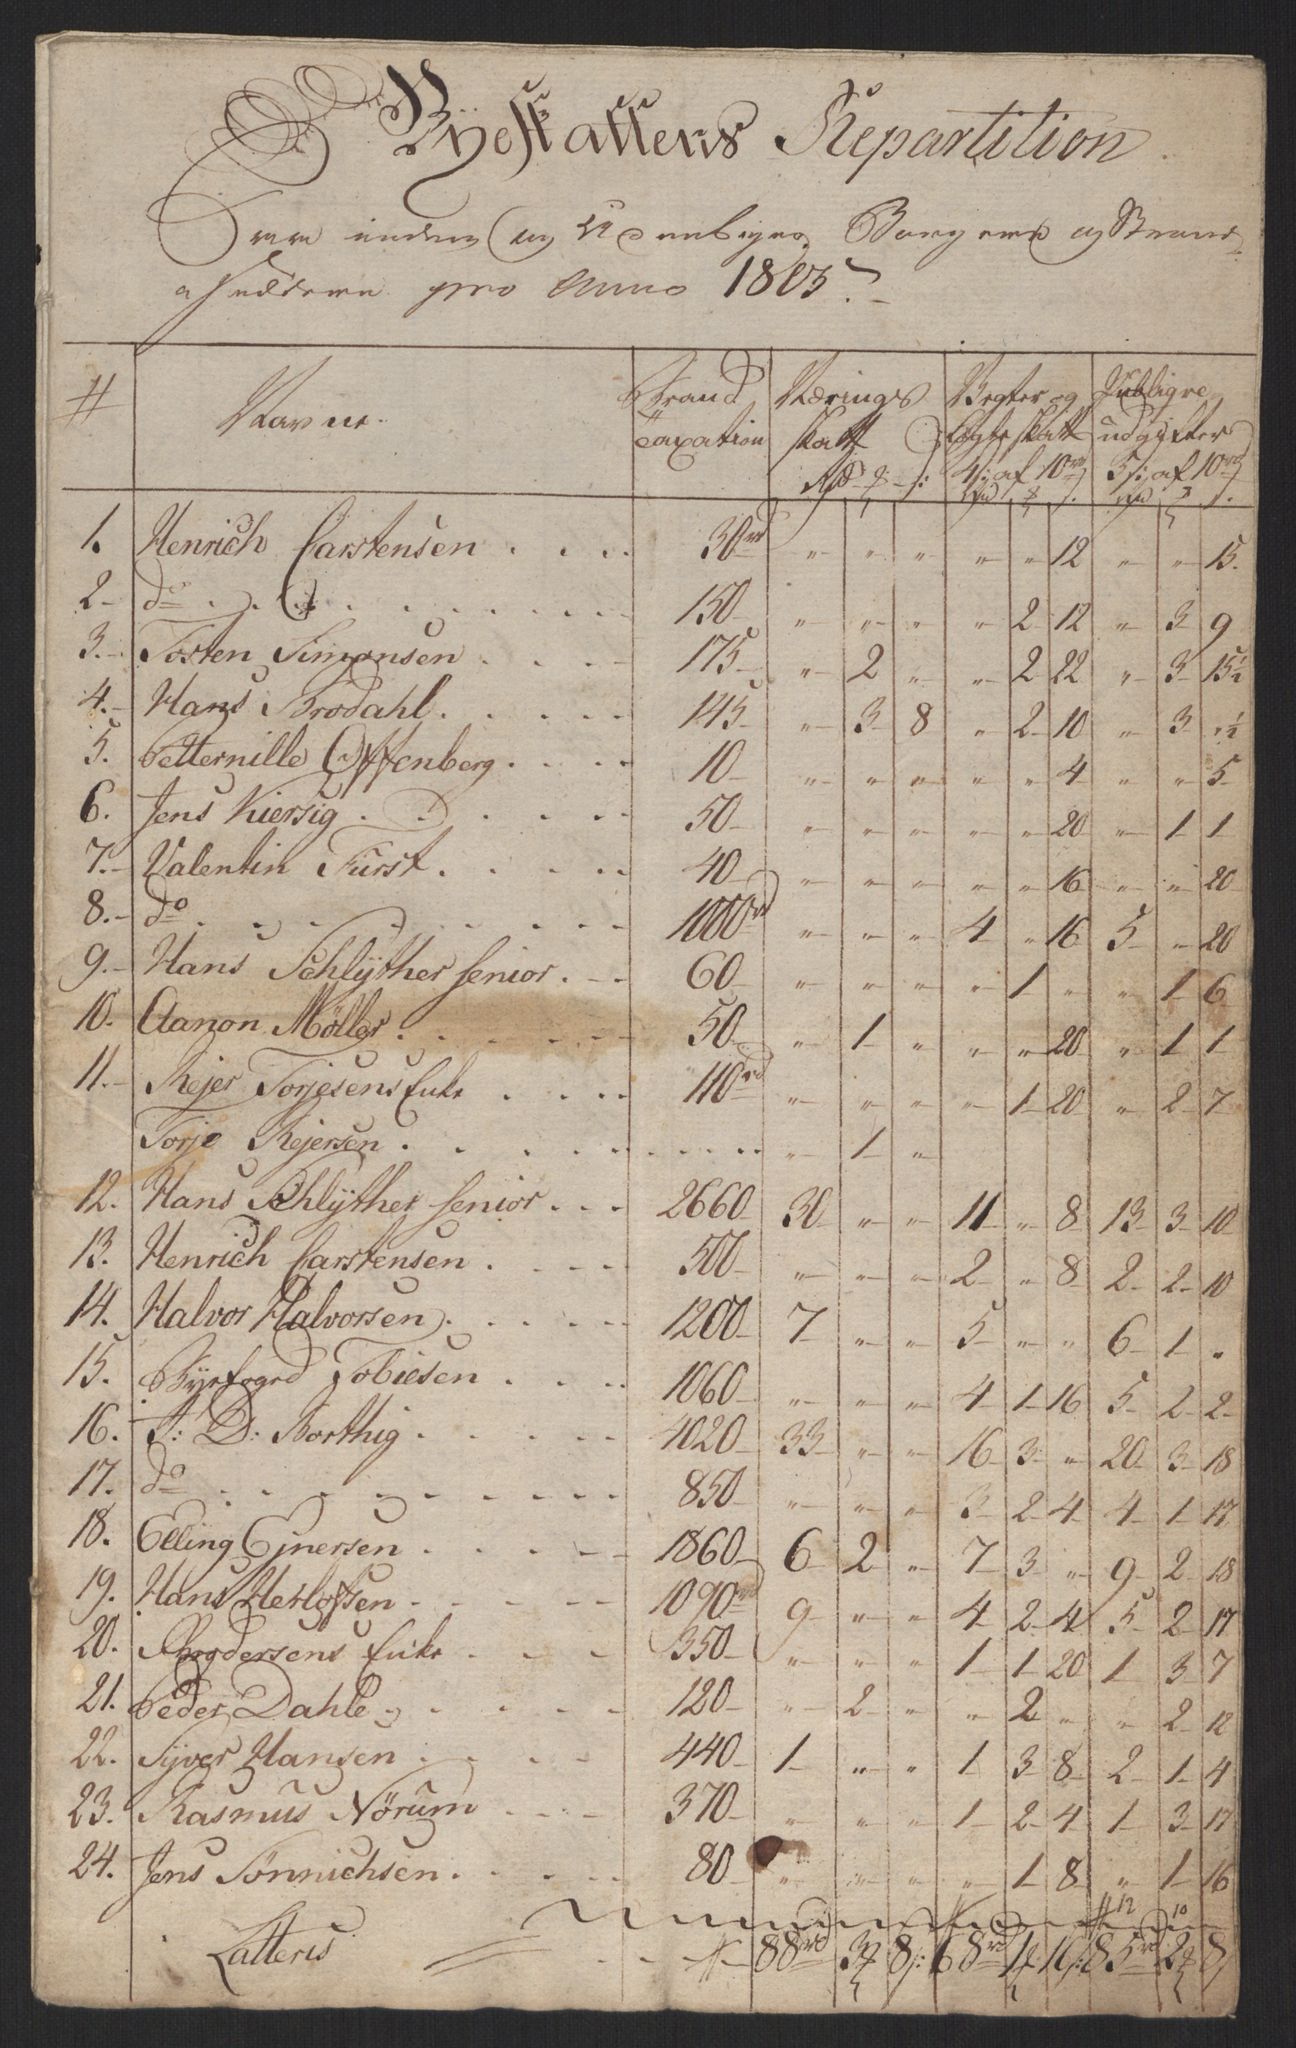 Byeskattens Repartition
over inden og Udenbyes Borgere og Strand-
siidderne pro Anno 1803.
# Navne. Brand Taxation Nærings Skatt Rd ß Vegter og Løgteskatt 4 ß af 10 rd Publiqve udgifter 5 ß af 10 rd
1. Henrich Carstensen . . . . 30 rd " " " " " 12 " " 15.
2 do . . . . 150 " " " " 2 12 " 3 9
3. Tosten Simonsen . . . . 175 " 2 " " 2 22 " 3 15½
4. Hans Brodahl . . . . 145 " 3 8 " 2 10 " 3 "½
5. Petternille Offenberg . . . . 10 " " " " " 4 " " 5
6. Jens Kiersig . . . . 50 " " " " " 20 " 1 1
7. Valentin Fürst . . . . 40 " " " " " 16 " " 20
8. do . . . . 1000 rd " " " 4 " 16 5 " 20
9. Hans Schlyther senior . . . 60 " " " " 1 " " 1 6
10. Aanon Møller . . . . 50 " 1 " " " 20 " 1 1
11. Rejer Torjesens Enke . . . . 110 rd " " " " 1 20 " 2 7
Torje Rejersen . . . . " 1 "
12. Hans Schlyther senior . . . 2660 30 " " 11 " 8 13 3 10
13. Henrich Carstensen . . . . 500 " " " 2 " 8 2 2 10
14. Halvor Halvorsen . . . . 1200 7 " " 5 " " 6 1 "
15. Byefoged Tobiesen . . . . 1060 " " " 4 1 16 5 2 2
16. J: D: Borthig . . . . 4020 33 " " 16 3 " 20 3 18
17. do . . . . 850 " " " 3 2 4 4 1 17
18. Elling Ejnersen . . . . 1860 6 2 " 7 3 " 9 2 18
19. Hans Herlofsen . . . . 1090 rd 9 " " 4 2 4 5 2 17
20. Enke . . . . 350 " " " 1 1 20 1 3 7
21. Peder Dahle . . . . 120 " 2 " " 2 " " 2 12
22. Syver Hansen . . . . 440 1 " " 1 3 8 2 1 4
23. Rasmus Nörum . . . . 370 " " " 1 2 4 1 3 17
24. Jens Sönnichsen . . . . 80 " " " " 1 8 " 1 16
12 10
Latteris . . . 88 rd 3 8 ß 68 rd 1 16 ß 85 rd 2 8 ß